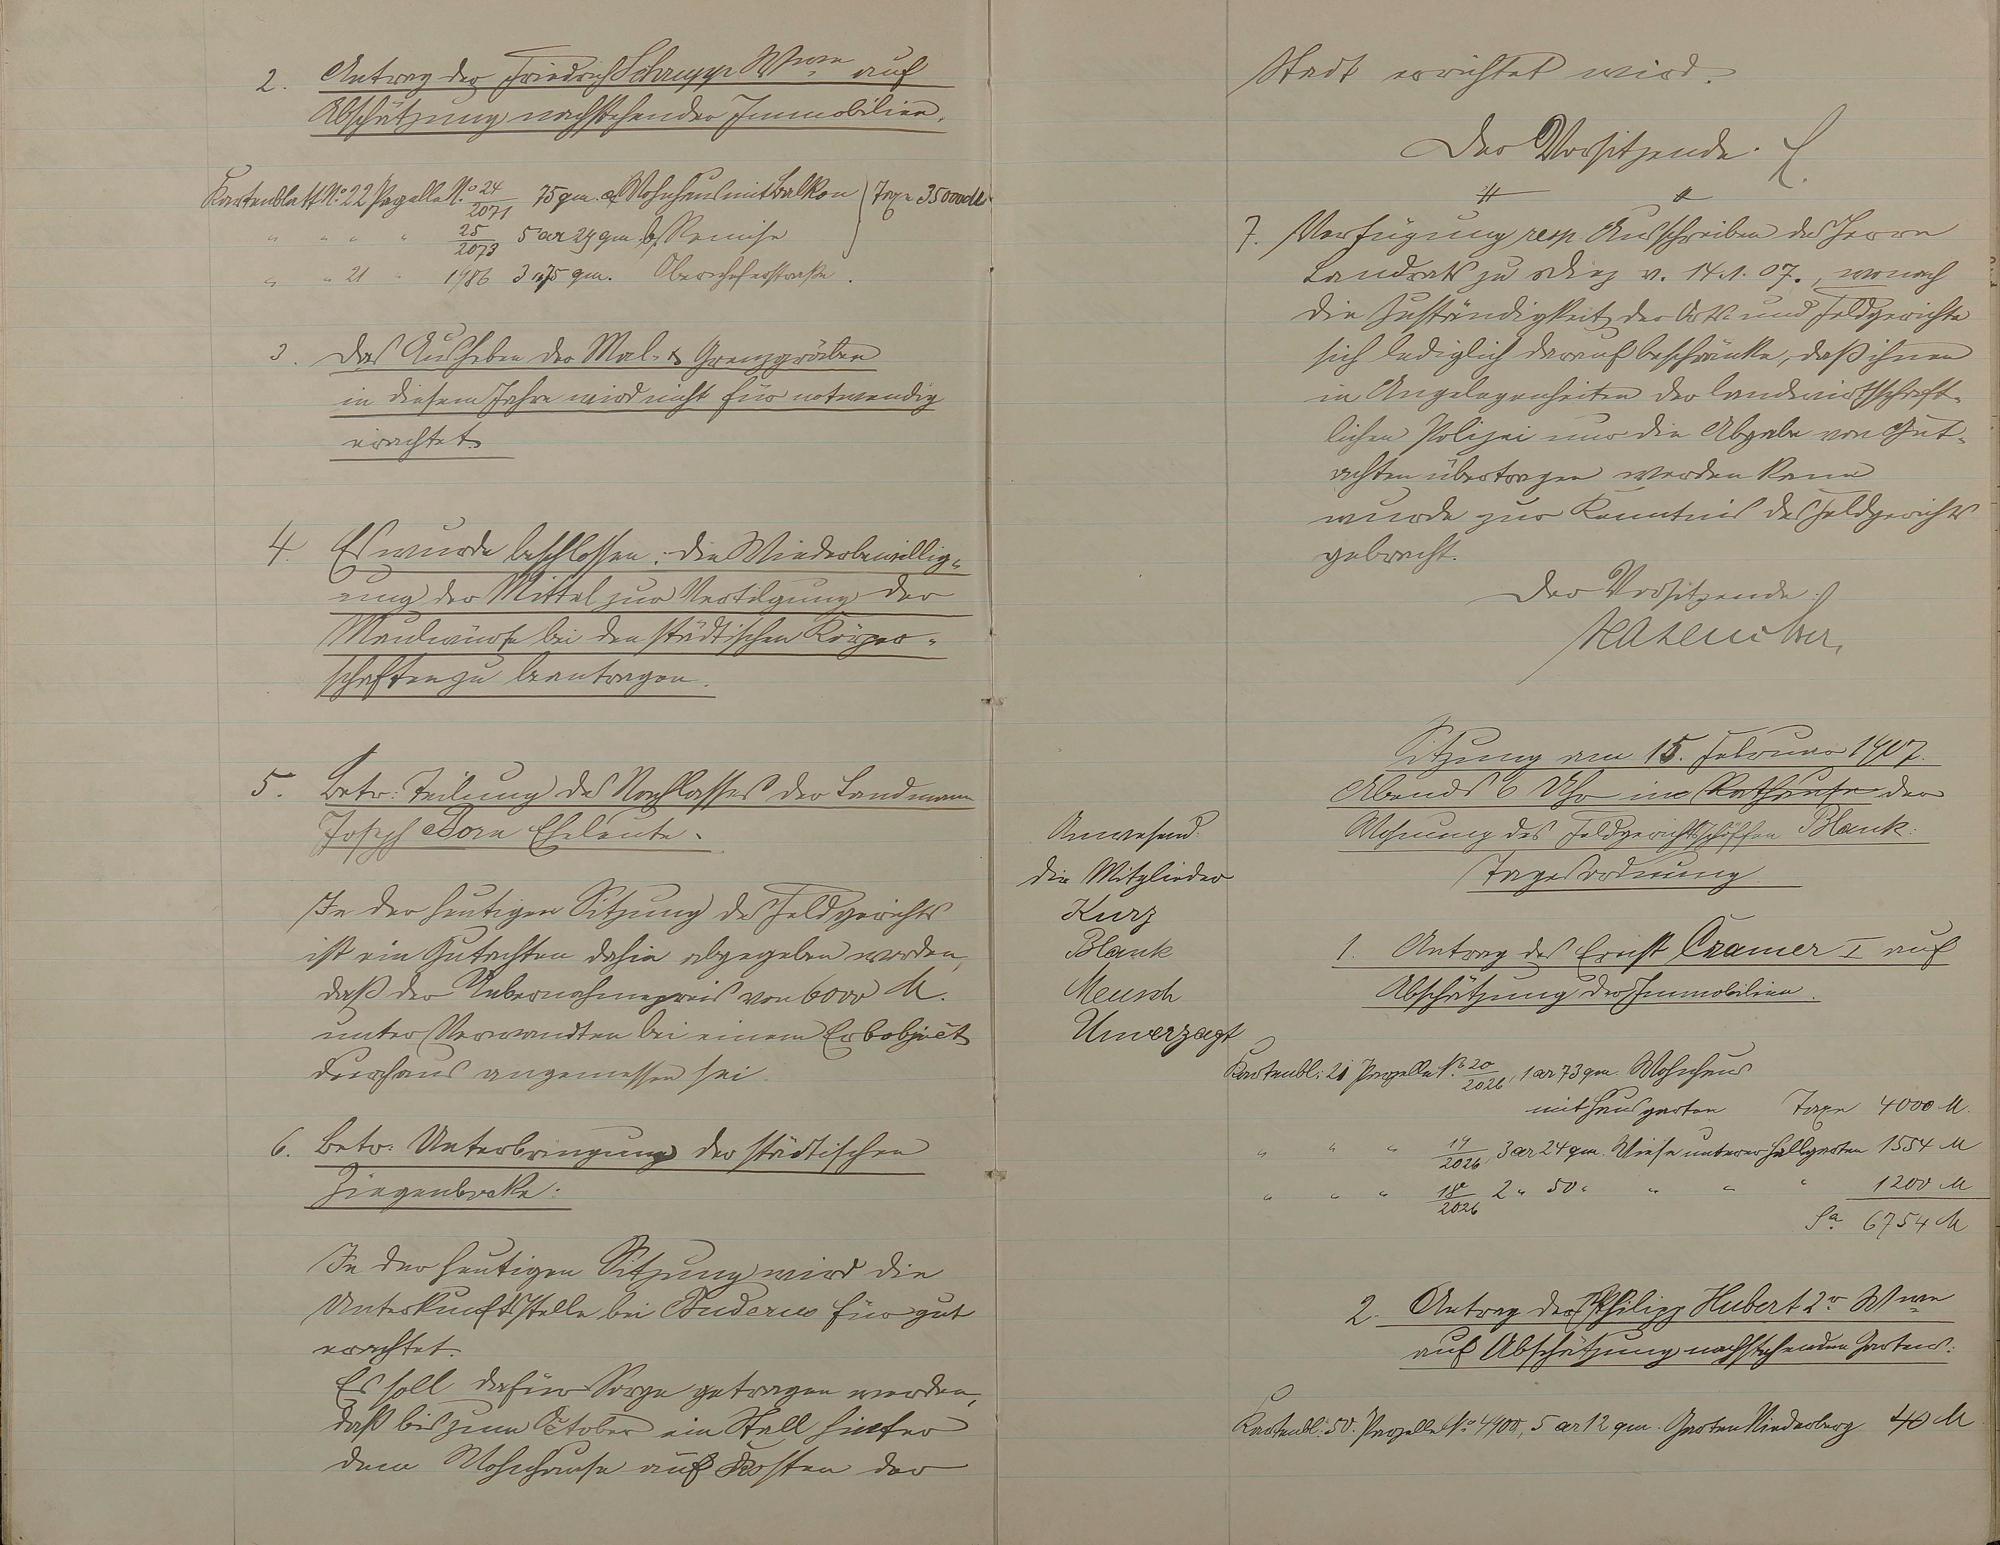 2. Antrag der Friedrich Schrupp Wwe auf
Abschätzung nachstehender Immobilien.
Kartenblatt No. 22 Parzelle No. 24/2071 75 qm. a, Wohnhaus mit Balkon } Taxe 35000 M
" " " " 25/2073 5 ar 29 qm b, Remise
" " 21 " 1986 3 " 75 qm. Oberauferstraße.
3. Das Ausheben der Mal- & Grenzgräben
in diesem Jahre wird nicht für notwendig
erachtet.
4. Es wurde beschlossen: die Wiederbewillig-
ung der Mittel zur Vertilgung der
Maulwürfe bei den städtischen Körper-
schaften zu beantragen.
5. Betr: Teilung des Nachlasses der Landmann
Joseph Born Eheleute.
In der heutigen Sitzung des Feldgerichts
ist ein Gutachten dahin abgegeben worden,
daß der Uebernahmepreis von 6000 M.
unter Verwandten bei einem Erbobject
durchaus angemessen sei.
6. Betr: Unterbringung der städtischen
Ziegenböcke:
In der heutigen Sitzung wird die
Unterkunftsstelle bei Buderus für gut
erachtet.
Es soll dafür Sorge getragen werden,
daß bis zum October ein Stall hinter
dem Wohnhause auf Kosten der
Stadt errichtet wird.
Der Vorsitzende.
7. Verfügung resp. Ausschreiben des Herrn
Landrats zu Diez v. 14.1.07., wonach
die Zuständigkeit der Orts- und Feldgerichte
sich lediglich darauf beschränke, daß ihnen
in Angelegenheiten der landwirthschaft-
lichen Polizei nur die Abgabe von Gut-
achten übertragen werden kann
wurde zur Kenntnis des Feldgerichts
gebracht.
Der Vorsitzende:
Sitzung am 15. Februar 1907.
Abends 6 Uhr im Rathause der
Wohnung des Feldgerichtsschöffen Blank:
Tagesordnung
Anwesend:
die Mitglieder
Kurz
Blank
Meusch
Unverzagt
1. Antrag des Ernst Cramer I auf
Abschätzung der Immobilien.
Kartenbl: 21 Parzelle No. 20/2026, 1 ar 73 qm. Wohnhaus
mit Hausgarten Taxe 4000 M.
" " " 19/2026, 3 ar 24 qm. Wiese unterer Hallgarten 1554 M
" " " 18/2026 2 " 50 " " " " 1200 M
Sa. 6754 M
2. Antrag der Philipp Hubert 2r Wwe
auf Abschätzung nachstehenden Gartens:
Kartenbl: 50. Parzelle No. 4900, 5 ar 12 qm. Garten Niederberg 40 M